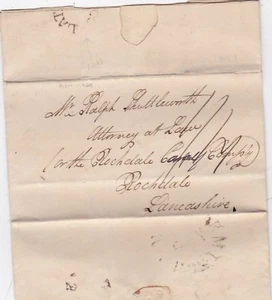 Mr. Ralph Shuttleworth
Attorney at Law
for the Rochdale Canal Compy
Rochdale
Lancashire